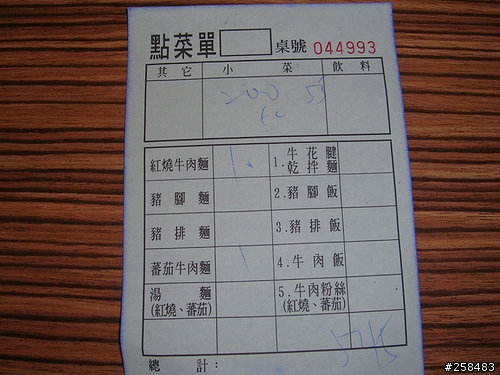 點菜單 桌號 044993
其它 小菜 飲料
200 55
60
紅燒牛肉麵 1. 1.牛花腱乾拌麵
豬腳麵 2.豬腳飯
豬排麵 3.豬排飯
蕃茄牛肉麵 1 4.牛肉飯
湯麵 5.牛肉粉絲
(紅燒、蕃茄) (紅燒、蕃茄)
總計:
#258483